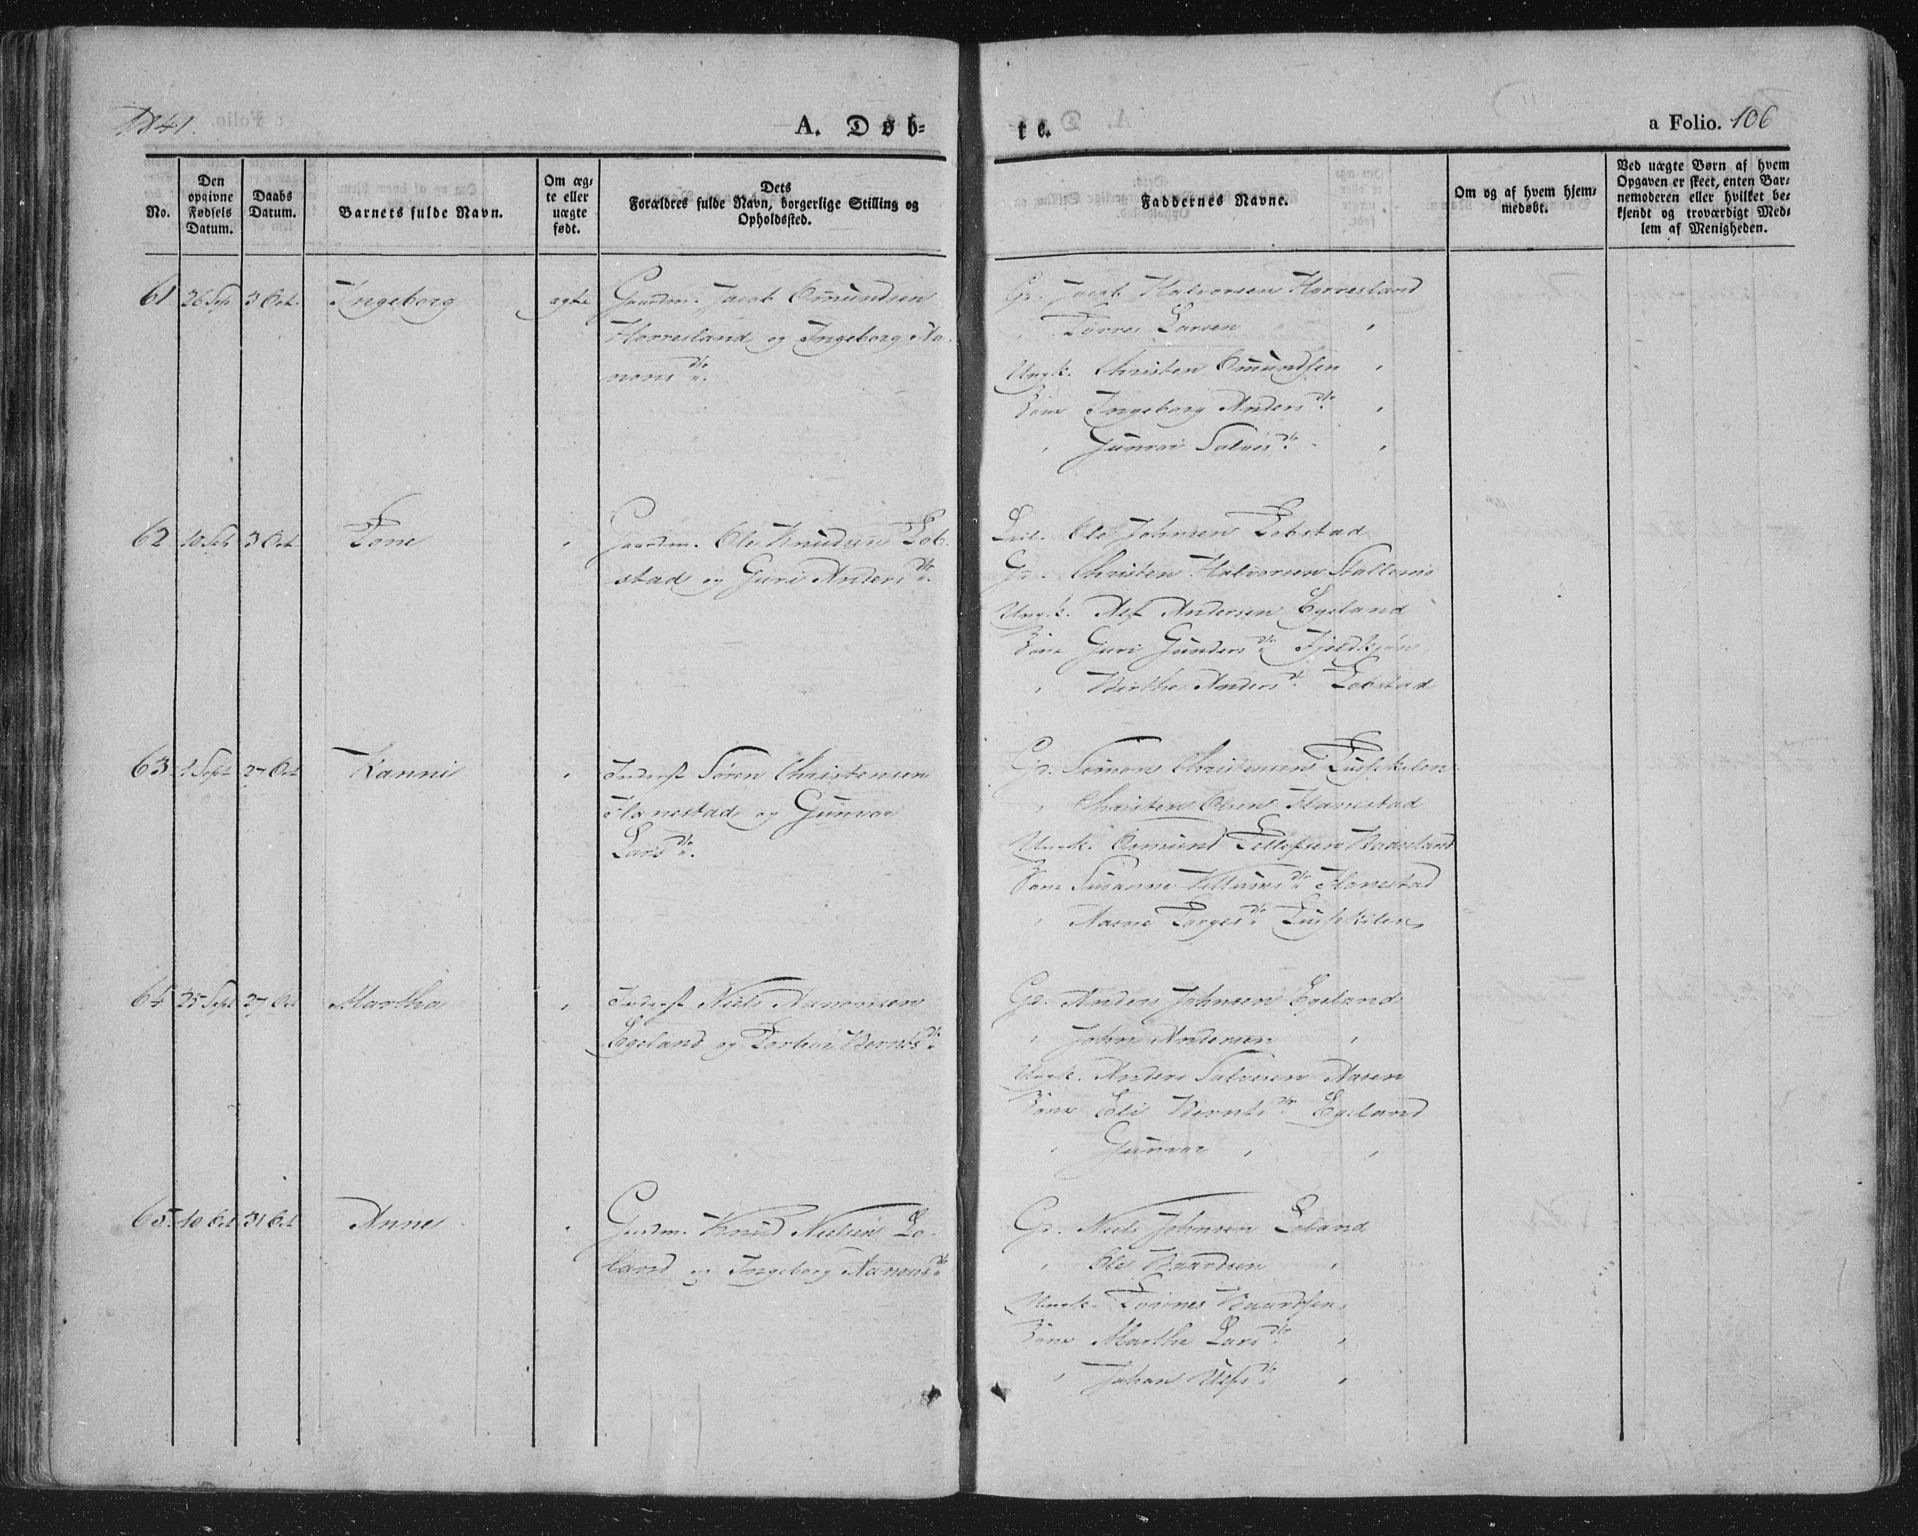 1841.
A. Døb-
te.
a Folio. 106
No.
Den opgivne Fødsels Datum.
Daabs Datum.
Barnets fulde Navn.
Om ægte eller uægte født.
Dets
Forældres fulde Navn, borgerlige Stilling og
Opholdssted.
Faddernes Navne.
Om og af hvem hjem-
medøbt.
Ved uægte Børn af hvem
Opgaven er skeet, enten Bar-
nemoderen eller hvilket be-
kjendt og troværdigt Med-
lem af Menigheden.
61 26 Sep. 3 Oct. Ingeborg ægte Gaardm. Jacob Omundsen
Horresland og Ingeborg Aa-
nons dtr.
Gr. Jacob Halvorsen Horresland
" Tørres Larsen "
Ungk. Christen Omundsen "
Køne Ingeborg Anders dtr. "
" Gunvor Salves dtr. "
62 10 Sept 3 Oct Tone " Gaardm. Ole Knudsen Lob-
stad og Guri Anders dtr.
Ole Johnsen Lobstad
Gr. Christen Halvorsen
Ungk. Alf Andersen Egeland
Køne Guri Gunders dtr. Fjeldkjøn
" Berthe Anders dtr. Lobstad
63 1 Sept 27 Oct Kanni " Inderst Søren Christensen
Hanestad og Gunvor
Lars dtr.
Gr. Simon Christensen
" Christen Olsen Hanestad
Ungk. Osmund Tellefsen
Køne Susanne dtr. Hanestad
" Aasne Torges dtr.
64 25 Sept 27 Oct Martha " Inderst Niels Aanonsen
Egeland og Torbor Bernts dtr.
Gr. Anders Johnsen Egeland
" John Andersen "
Ungk. Anders Salvesen Aasen
Køne Eli Bernts dtr. Egeland
" Gunvor " "
65. 10 Oct 31 Oct Anne " Gaardm. Knud Nielsen Lo-
land og Ingeborg Aanons dtr.
Gr. Niels Johnsen Loland
" Ole Baardsen "
Ungk. Tønnes Baardsen "
Køne Marthe Lars dtr. "
" Johan dtr. "